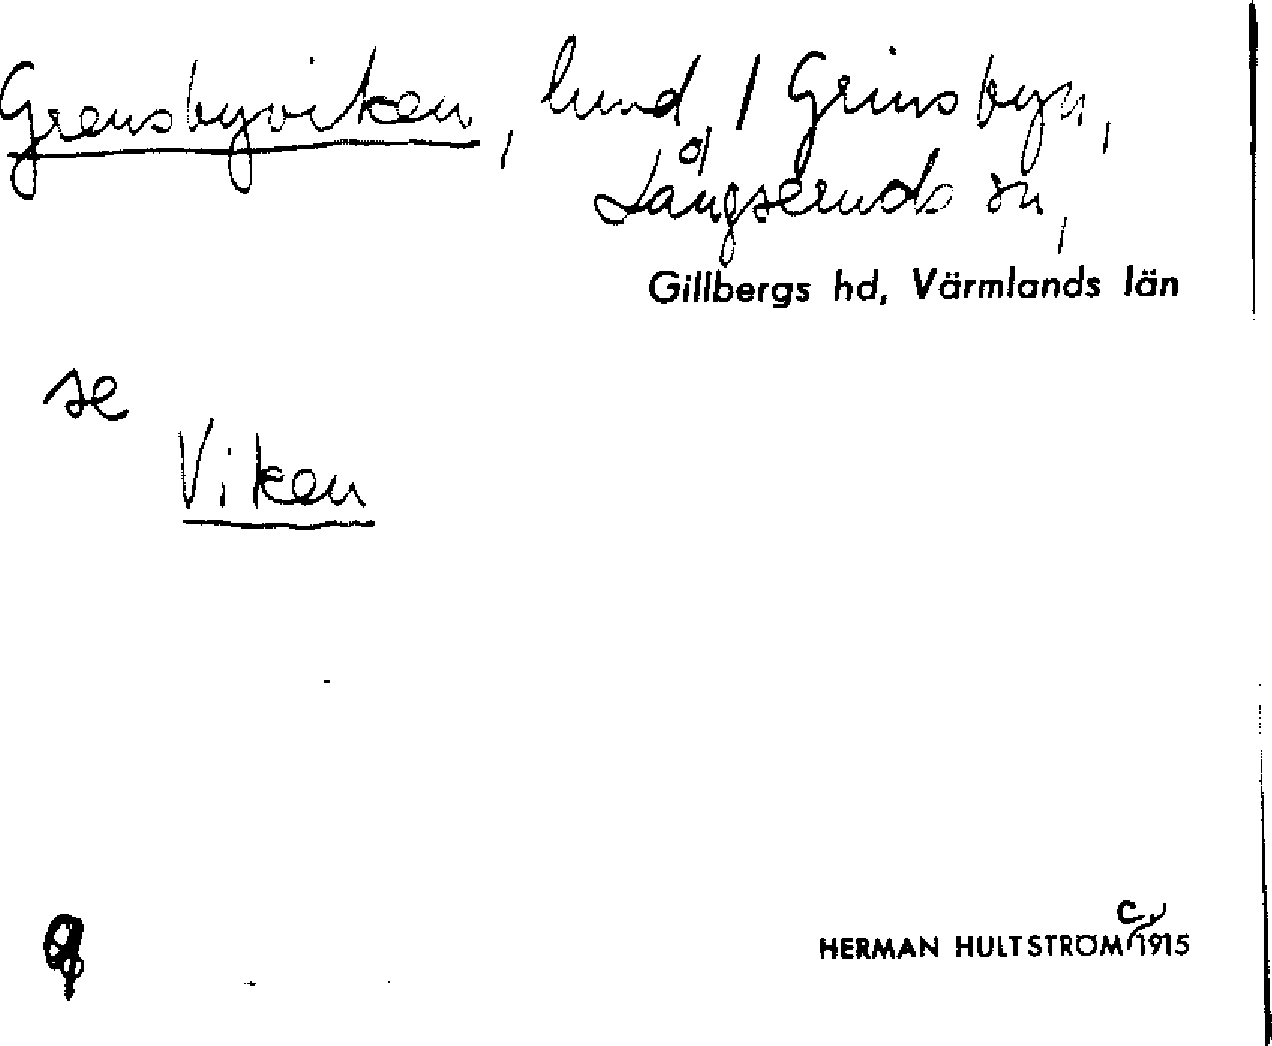 Grensbyviken, lund / Grinsbyn,
Långseruds sn,
Gillbergs hd, Värmlands län
se
Viken
HERMAN HULTSTRÖM c. 1915